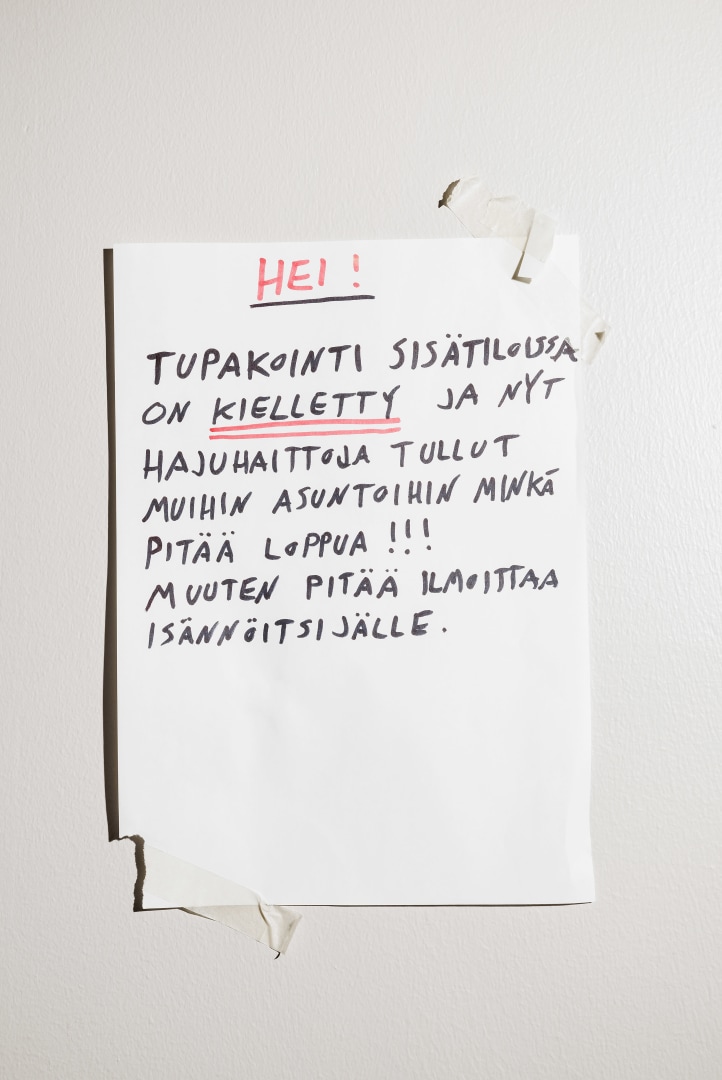 HEI !
TUPAKOINTI SISÄTILOISSA
ON KIELLETTY JA NYT
HAJUHAITTOJA TULLUT
MUIHIN ASUNTOIHIN MINKÄ
PITÄÄ LOPPUA !!!
MUUTEN PITÄÄ ILMOITTAA
ISÄNNÖITSIJÄLLE.